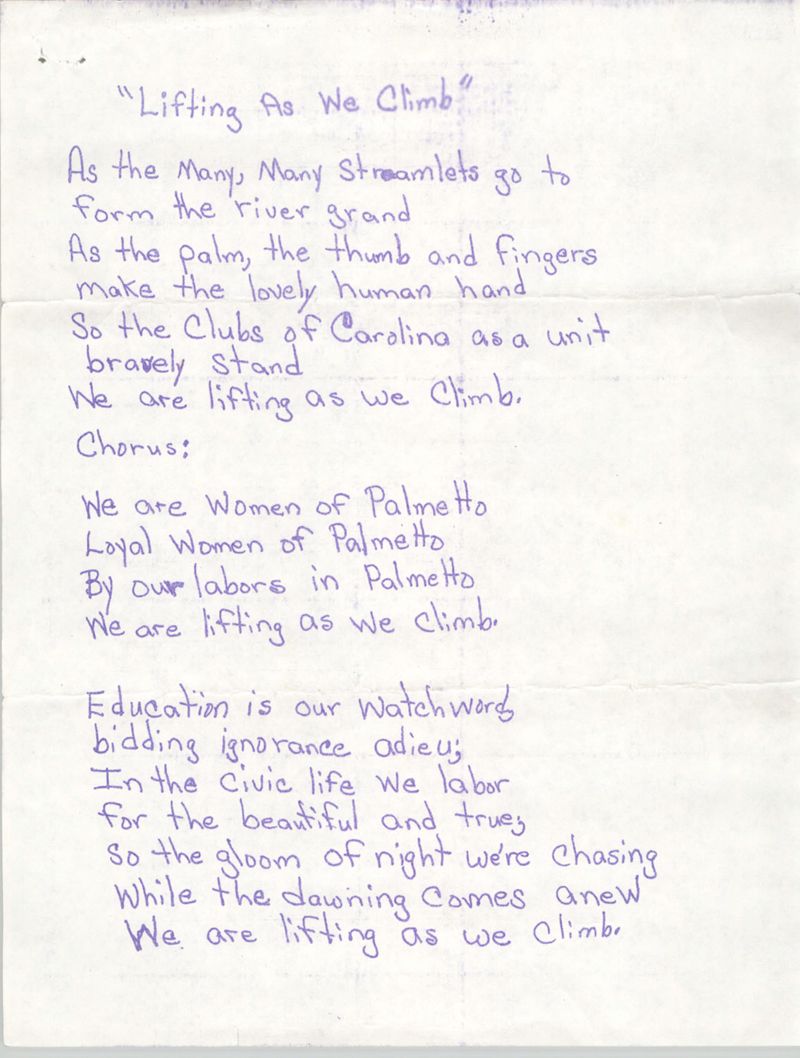 "Lifting As We Climb"
As the Many, Many Streamlets go to
form the river grand
As the palm, the thumb and fingers
make the lovely human hand
So the Clubs of Carolina as a unit
bravely stand
We are lifting as we Climb.
Chorus:
We are Women of Palmetto
Loyal Women of Palmetto
By our labors in Palmetto
We are lifting as we Climb.
Education is our Watchword,
bidding ignorance adieu;
In the Civic life we labor
for the beautiful and true;
So the gloom of night we're Chasing
While the dawning Comes anew
We are lifting as we Climb.